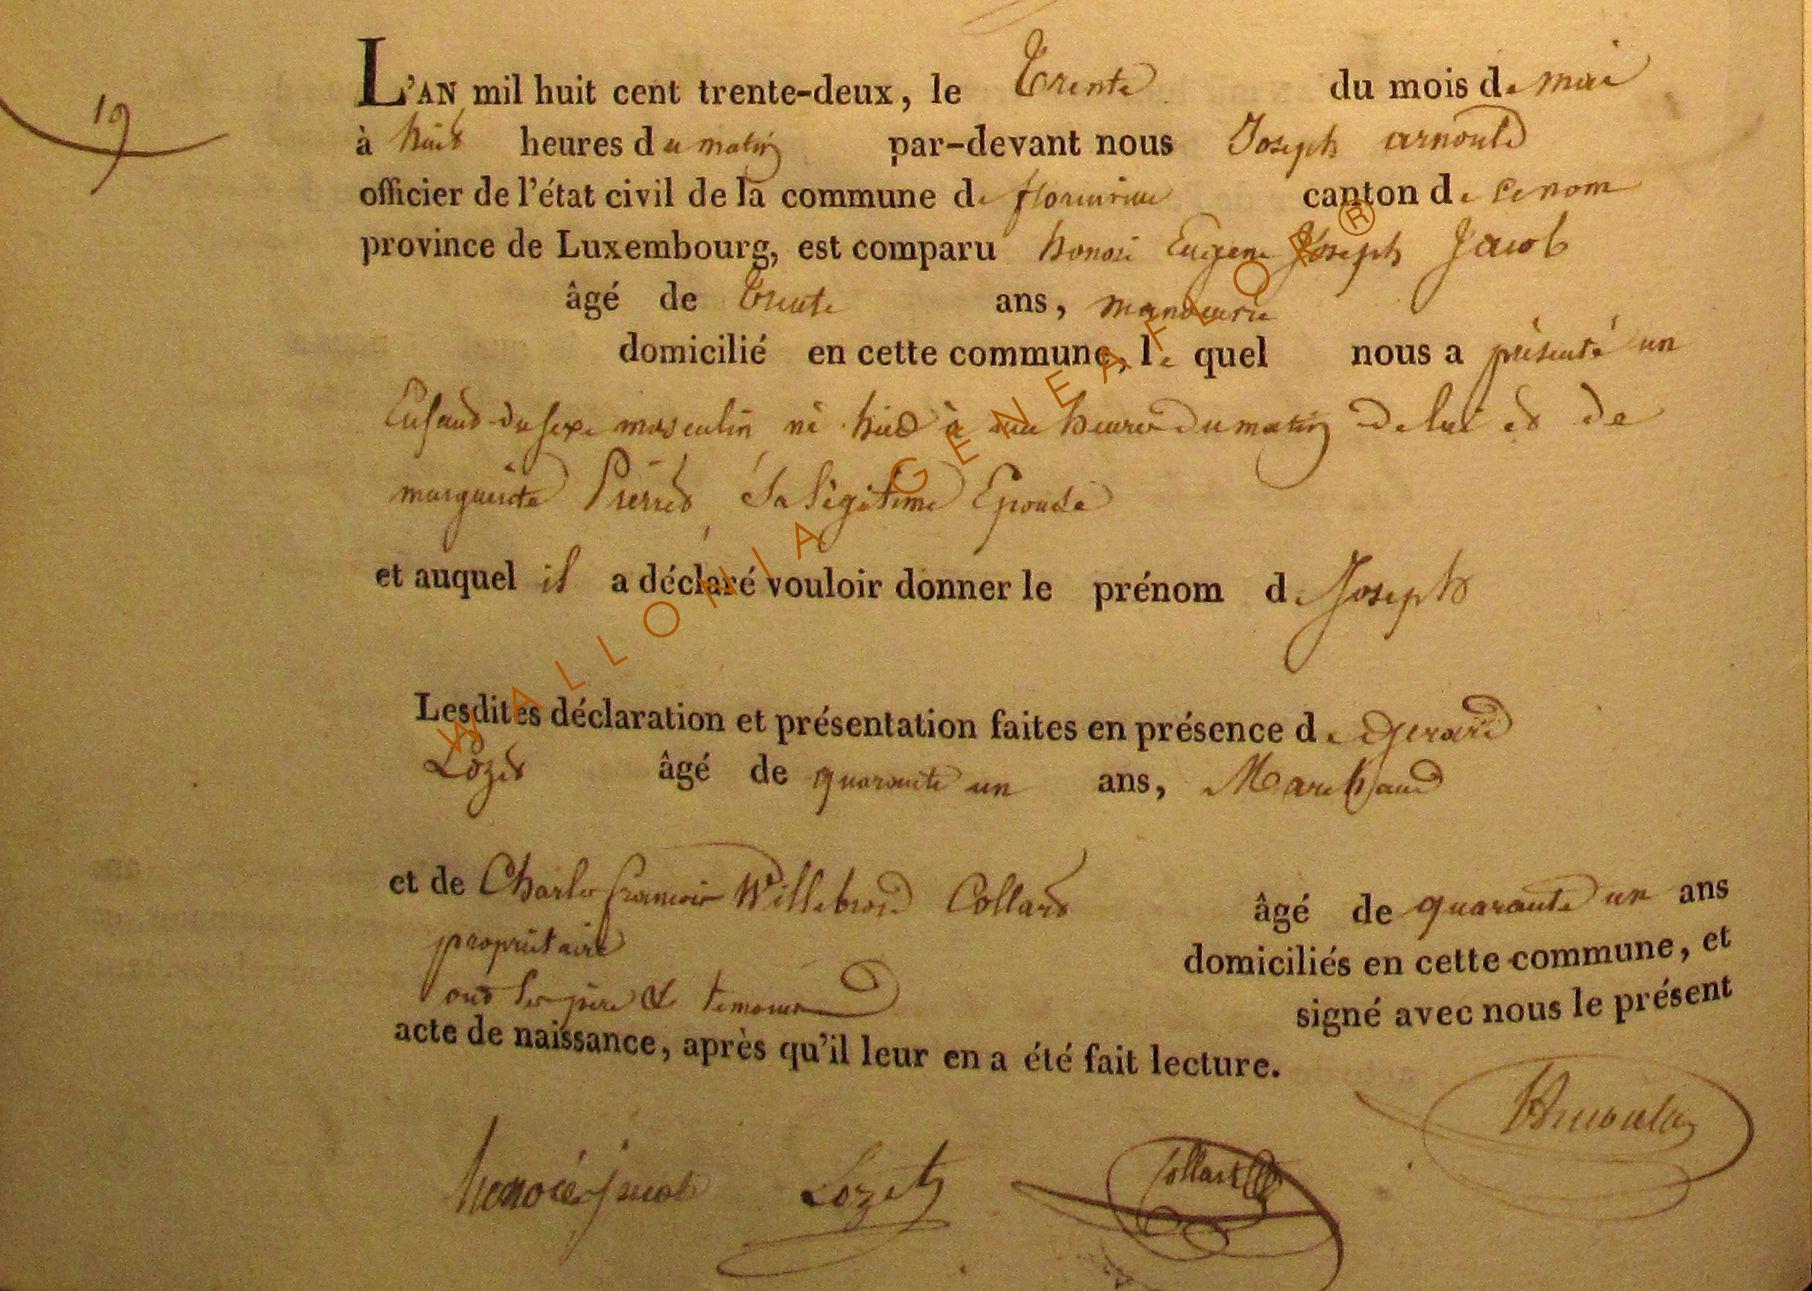 19
L'AN mil huit cent trente-deux, le trente du mois de mai
à huit heures du matin par-devant nous Joseph arnould
officier de l'état civil de la commune de florenville canton de ce nom
province de Luxembourg, est comparu honoré Eugene Joseph Jacob
âgé de trente ans, manoeuvre
domicilié en cette commune, le quel nous a présenté un
Enfant du sexe masculin né hier à une heures du matin de lui et de
marguerite Pierret Sa légitime Epouse
et auquel il a déclaré vouloir donner le prénom de Joseph
Lesdites déclaration et présentation faites en présence de gerard
Lozet âgé de quarante un ans, Marchand
et de Charles francois Willebrord Collard âgé de quarante un ans
propriétaire domiciliés en cette commune, et
ont les père & temoins signé avec nous le présent
acte de naissance, après qu'il leur en a été fait lecture.
honoré jacob Lozet Collard Arnould
WALLONIA GENEAFLOR ®